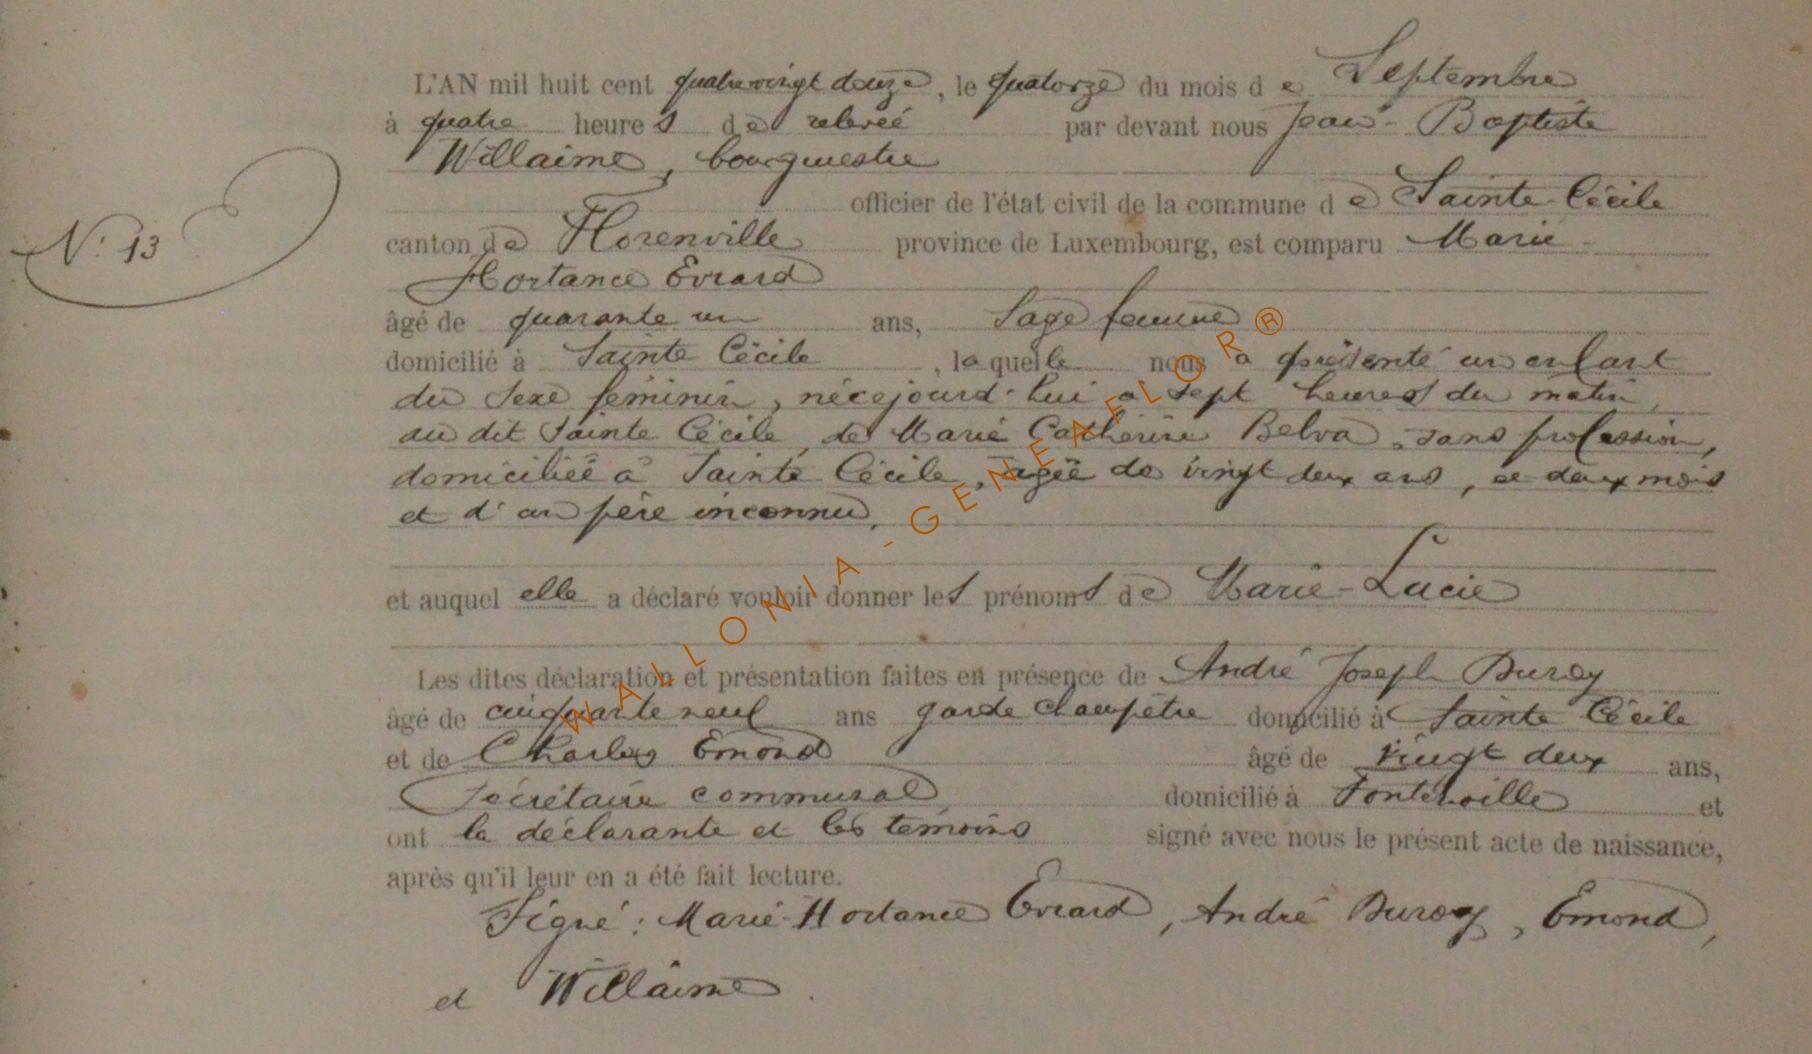 L'AN mil huit cent quatrevingt douze, le quatorze du mois de Septembre
à quatre heures de relevée par devant nous Jean-Baptiste
Willaime, bourgmestre
officier de l'état civil de la commune de Sainte-Cécile
N° 13
canton de Florenville province de Luxembourg, est comparu Marie-
Hortance Evrard
âgé de quarante un ans, Sage femme
domicilié à Sainte Cécile, laquelle nous a présenté un enfant
du sexe féminin, né cejourd'hui à sept heures du matin,
au dit Sainte Cécile, de Marie Catherine Belva, sans profession,
domiciliée à Sainte Cécile, agée de vingt deux ans, et deux mois
et d'un père inconnu,
et auquel elle a déclaré vouloir donner les prénoms de Marie-Lucie
Les dites déclaration et présentation faites en présence de André Joseph Duroy
âgé de cinquante neuf ans garde champêtre domicilié à Sainte Cécile
et de Charles Emond âgé de vingt deux ans,
Secrétaire communal, domicilié à Fontenoille et
ont la déclarante et les témoins signé avec nous le présent acte de naissance,
après qu'il leur en a été fait lecture.
Signé: Marie-Hortance Evrard, André Duroy, Emond,
et Willaime.
WALLONIA-GENEAFLOR®